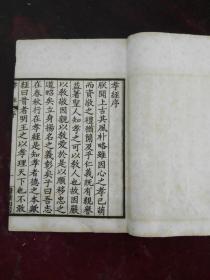 孝經序
朕聞上古其風朴略雖因心之孝已萌
而資敬之禮猶簡及乎仁義既有親譽
益著聖人知孝之可以教人也故因嚴
以教敬因親以教愛於是以順移忠之
道昭矣立身揚名之義彰矣子曰吾志
在春秋行在孝經是知孝者德之本歟
經曰昔者明王之以孝理天下也不敢